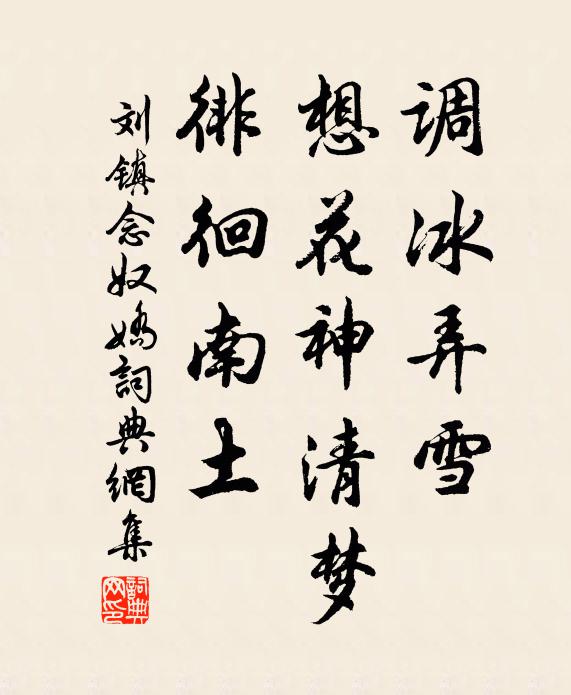 调冰弄雪
想花神清梦
徘徊南土
刘镇念奴娇詞典網集
詞典网印